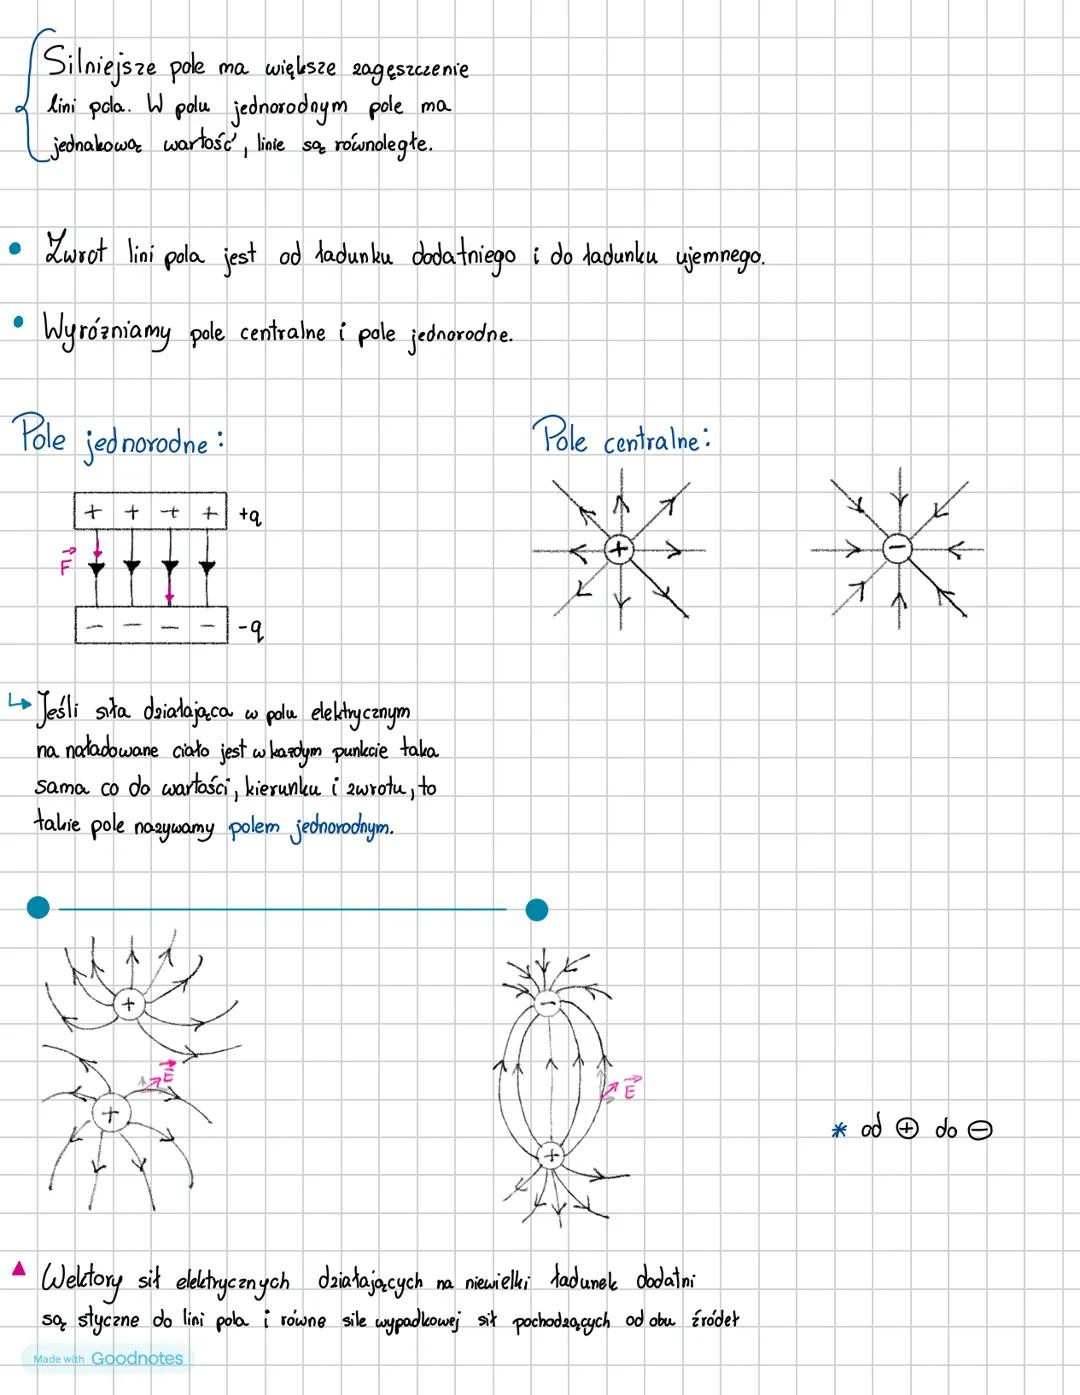 Silniejsze pole ma większe zagęszczenie
lini pola. W polu jednorodnym pole ma
jednakową wartość, linie są równoległe.
• Zwrot lini pola jest od ładunku dodatniego i do ładunku ujemnego.
• Wyróżniamy pole centralne i pole jednorodne.
Pole jednorodne:
+ + + + +q
F
− − − − -q
Pole centralne:
+ −
↳ Jeśli siła działająca w polu elektrycznym
na naładowane ciało jest w każdym punkcie taka
sama co do wartości, kierunku i zwrotu, to
takie pole nazywamy polem jednorodnym.
+
E
+
−
E
+
* od ⊕ do ⊖
▲ Wektory sił elektrycznych działających na niewielki ładunek dodatni
są styczne do lini pola i równe sile wypadkowej sił pochodzących od obu źródeł
Made with Goodnotes